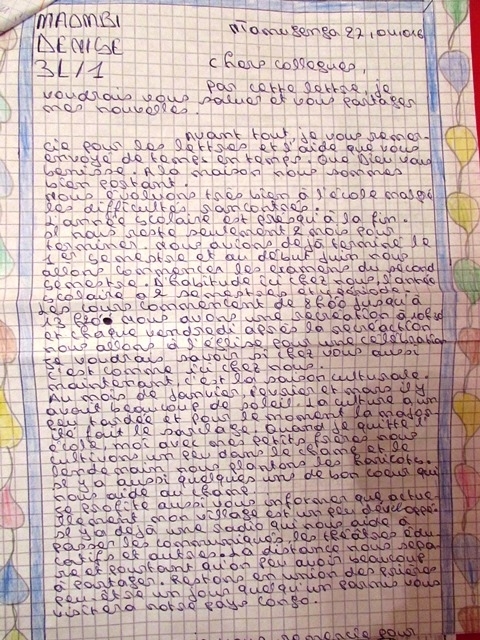 MAOMBI
DENISE
3L/1
27, 04/016
Chers collegues,
par cette lettre, je
voudrais vous saluer et vous partager
mes nouvelles.
Avant tout, je vous remer-
cie pour les lettres et l'aide que vous
envoye de temps en temps. Que Dieu vous
benisse. A la maison nous sommes
bien portant.
Nous evoluons très bien à l'école malgré
les difficultés rancontrées.
L'année scolaire est presqu'à la fin.
Il nous reste seulement 2 mois pour
terminer. Nous avions dejà terminé le
1er semestre et au début Juin nous
allons commencer les examens du second
semestre. D'habitude ici chez nous l'année
scolaire a 2 semestres et 4 periode.
Les cours commencent de 8h00 jusqu'à
nous avons une recreation à 10h
et chaque vendredi après la recreaction
nous allons à l'église pour une célébration
Je voudrais savoir si chez vous aussi
c'est comme ici chez nous.
maintenant c'est la saison culturale.
Au mois de Janvier, fevrier et mars il y
avait beaucoup de soleil. La culture a un
peu tardée et pour le moment la majo-
rité fait le sarclage. Quand je quitte l'
école, moi avec mes petits frères nous
cultivons un peu dans le champ et le
lendemain nous plantons les haricots.
Il y a aussi quelques uns de bon coeur qui
nous aide au champ.
Je profite aussi vous informer que actue-
llement mon village est un peu développé.
Il y a dejà une radio qui nous aide à
passer les communiqués, les théâtres édu-
catifs et autres. La distance nous sepa-
re et pourtant qu'on peu avoir beaucoup
à partager. Restons en union des prières
peu être un jour quelqu'un parmis vous
visitera notre pays Congo.
remercie pour